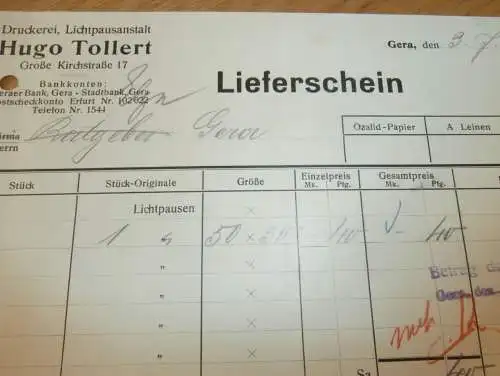 Druckerei, Lichtpausanstalt
Hugo Tollert
Große Kirchstraße 17
Bankkonten:
eraer Bank, Gera - Stadtbank, Gera
ostscheckkonto Erfurt Nr. 102022
Telefon Nr. 1544
Gera, den 3. 7
Lieferschein
irma Ratgeber Gera
errn
Ozalid-Papier A. Leinen
Stück Stück-Originale Größe Einzelpreis Gesamtpreis
Mk. Pfg. Mk. Pfg.
Lichtpausen ×
1 " 50 × 40
" ×
" ×
" ×
" ×
Betrag
Gera, den
Sa. 40